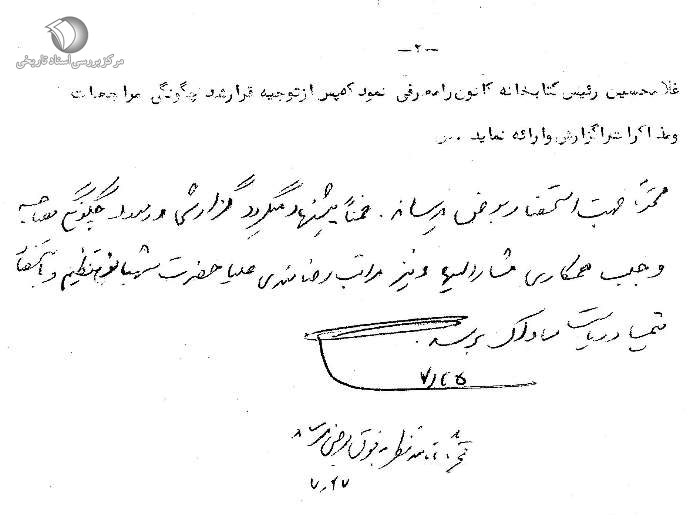 مرکز بررسی اسناد تاریخی
-۲-
غلامحسین رئیس کتابخانه کانون را معرفی نمود که پس از توجیه قرار شد چگونگی مراجعات
و مذاکرات را گزارش و ارائه نماید
مجدداً جهت استحضار بعرض میرساند. ضمناً پیشنهاد میگردد گزارشی در مورد چگونگی مصاحبه
و جلب همکاری مشارالیها و نیز مراتب رضامندی علیاحضرت شهبانو تنظیم و باستحضار
تیمسار ریاست ساواک برسد.
۷/۲۵
۷/۲۷